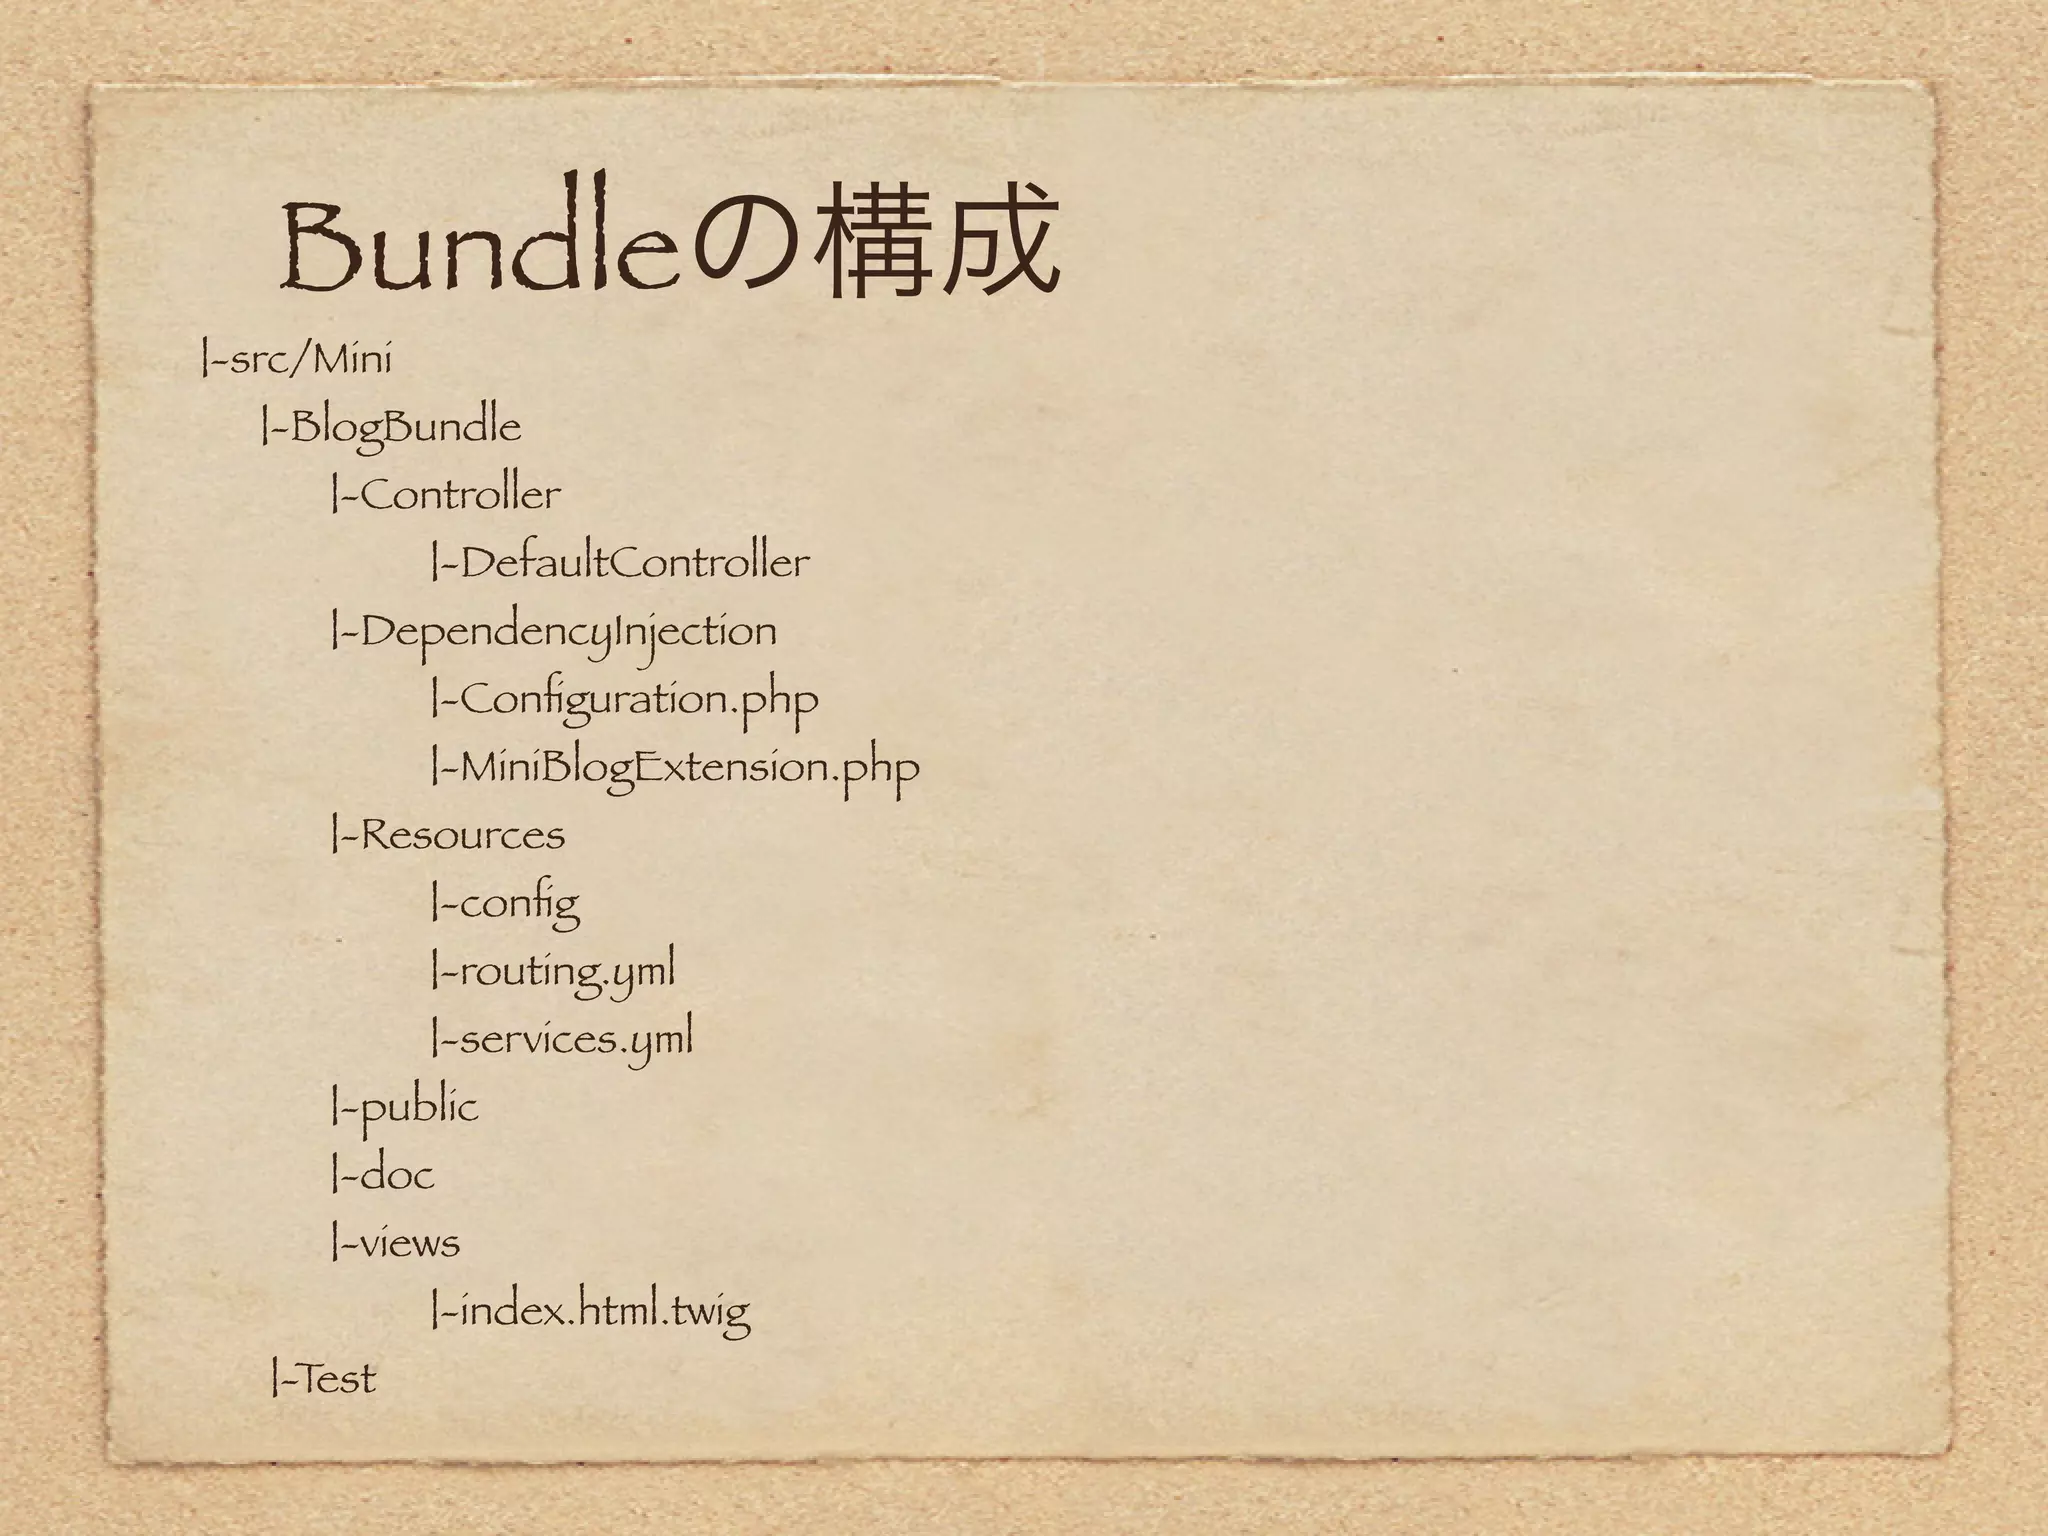 Bundleの構成
|-src/Mini
|-BlogBundle
|-Controller
|-DefaultController
|-DependencyInjection
|-Configuration.php
|-MiniBlogExtension.php
|-Resources
|-config
|-routing.yml
|-services.yml
|-public
|-doc
|-views
|-index.html.twig
|-Test